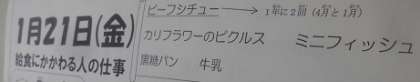 1月21日(金)
給食にかかわる人の仕事
ビーフシチュー → 1年に2回 (4月と1月)
カリフラワーのピクルス ミニフィッシュ
黒糖パン 牛乳